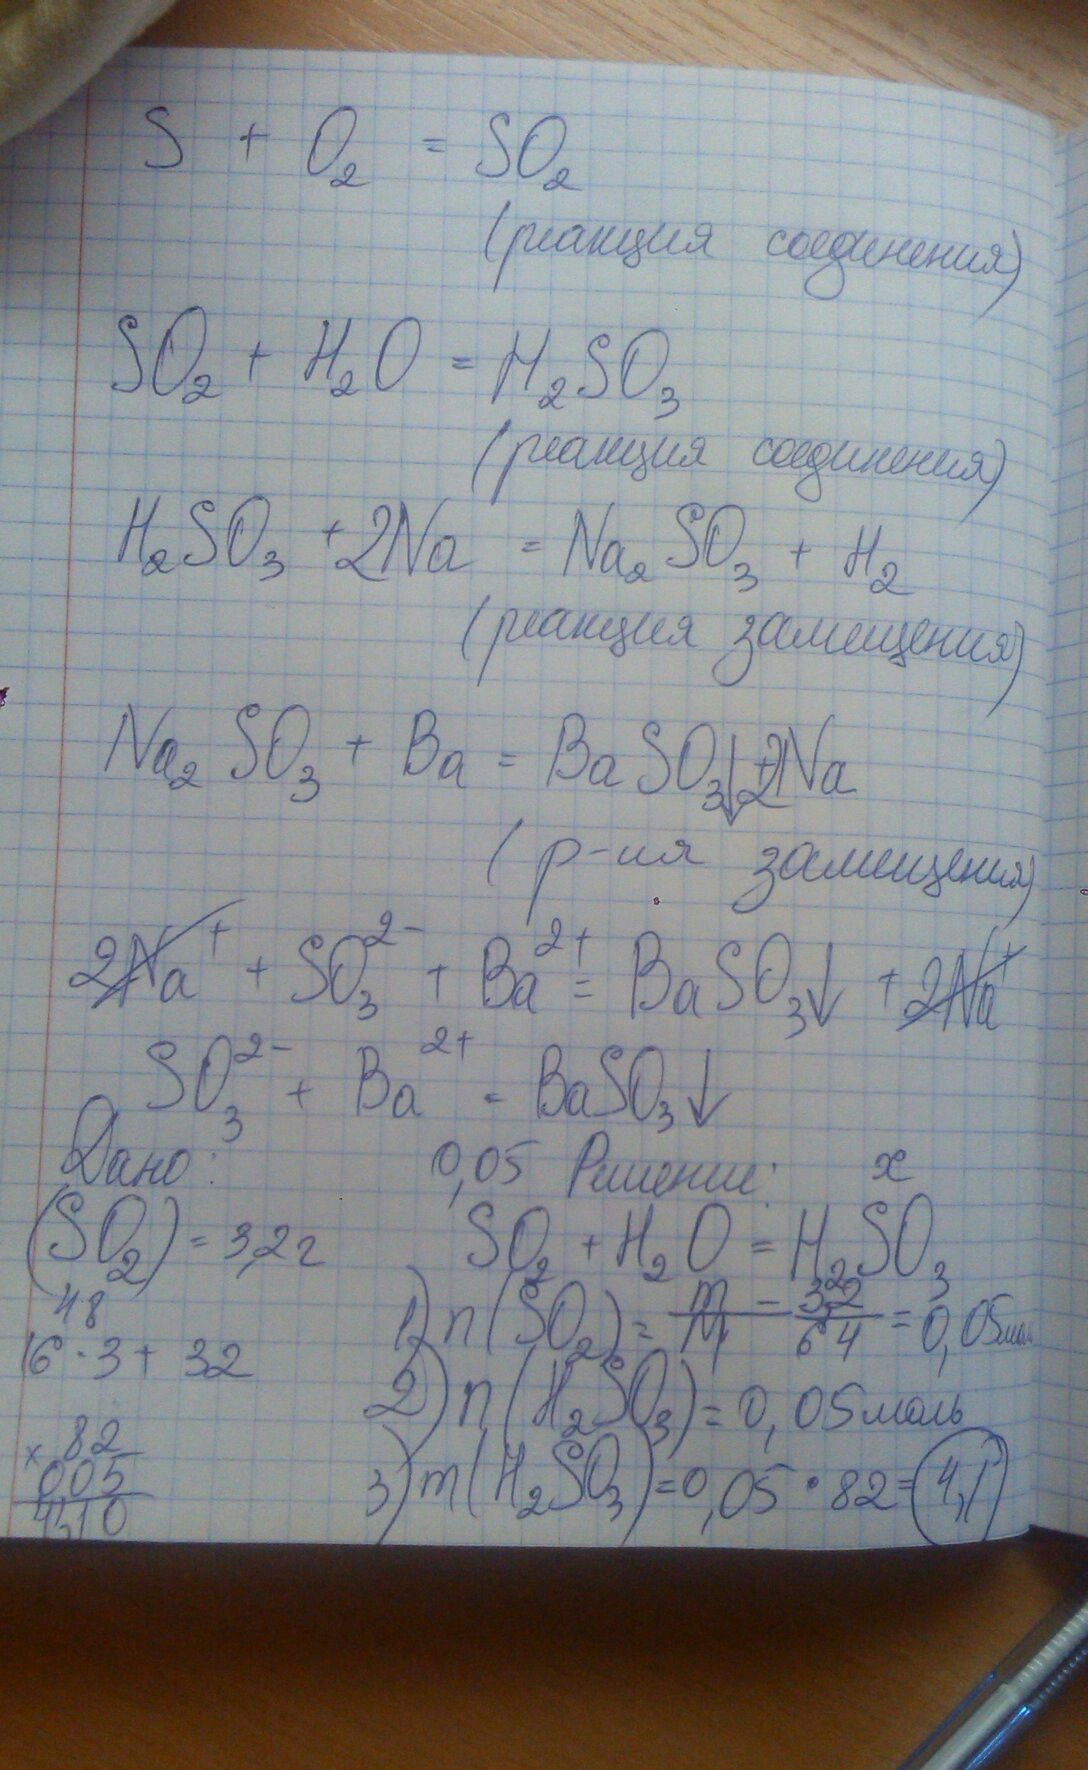 S + O₂ = SO₂
(реакция соединения)
SO₂ + H₂O = H₂SO₃
(реакция соединения)
H₂SO₃ + 2Na = Na₂SO₃ + H₂
(реакция замещения)
Na₂SO₃ + Ba = BaSO₃↓ + 2Na
(р-ия замещения)
2Na⁺ + SO₃²⁻ + Ba²⁺ = BaSO₃↓ + 2Na⁺
SO₃²⁻ + Ba²⁺ = BaSO₃↓
Дано: 0,05 Решение: x
(SO₂) = 3,2г SO₂ + H₂O = H₂SO₃
48 1) n(SO₂) = m/M = 3,2/64 = 0,05моль
16·3 + 32
2) n(H₂SO₃) = 0,05моль
×82
005 3) m(H₂SO₃) = 0,05 · 82 = 4,1
4,10